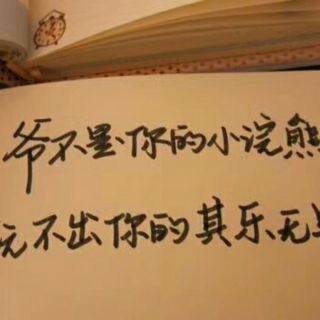 爷不是你的小浣熊
玩不出你的其乐无